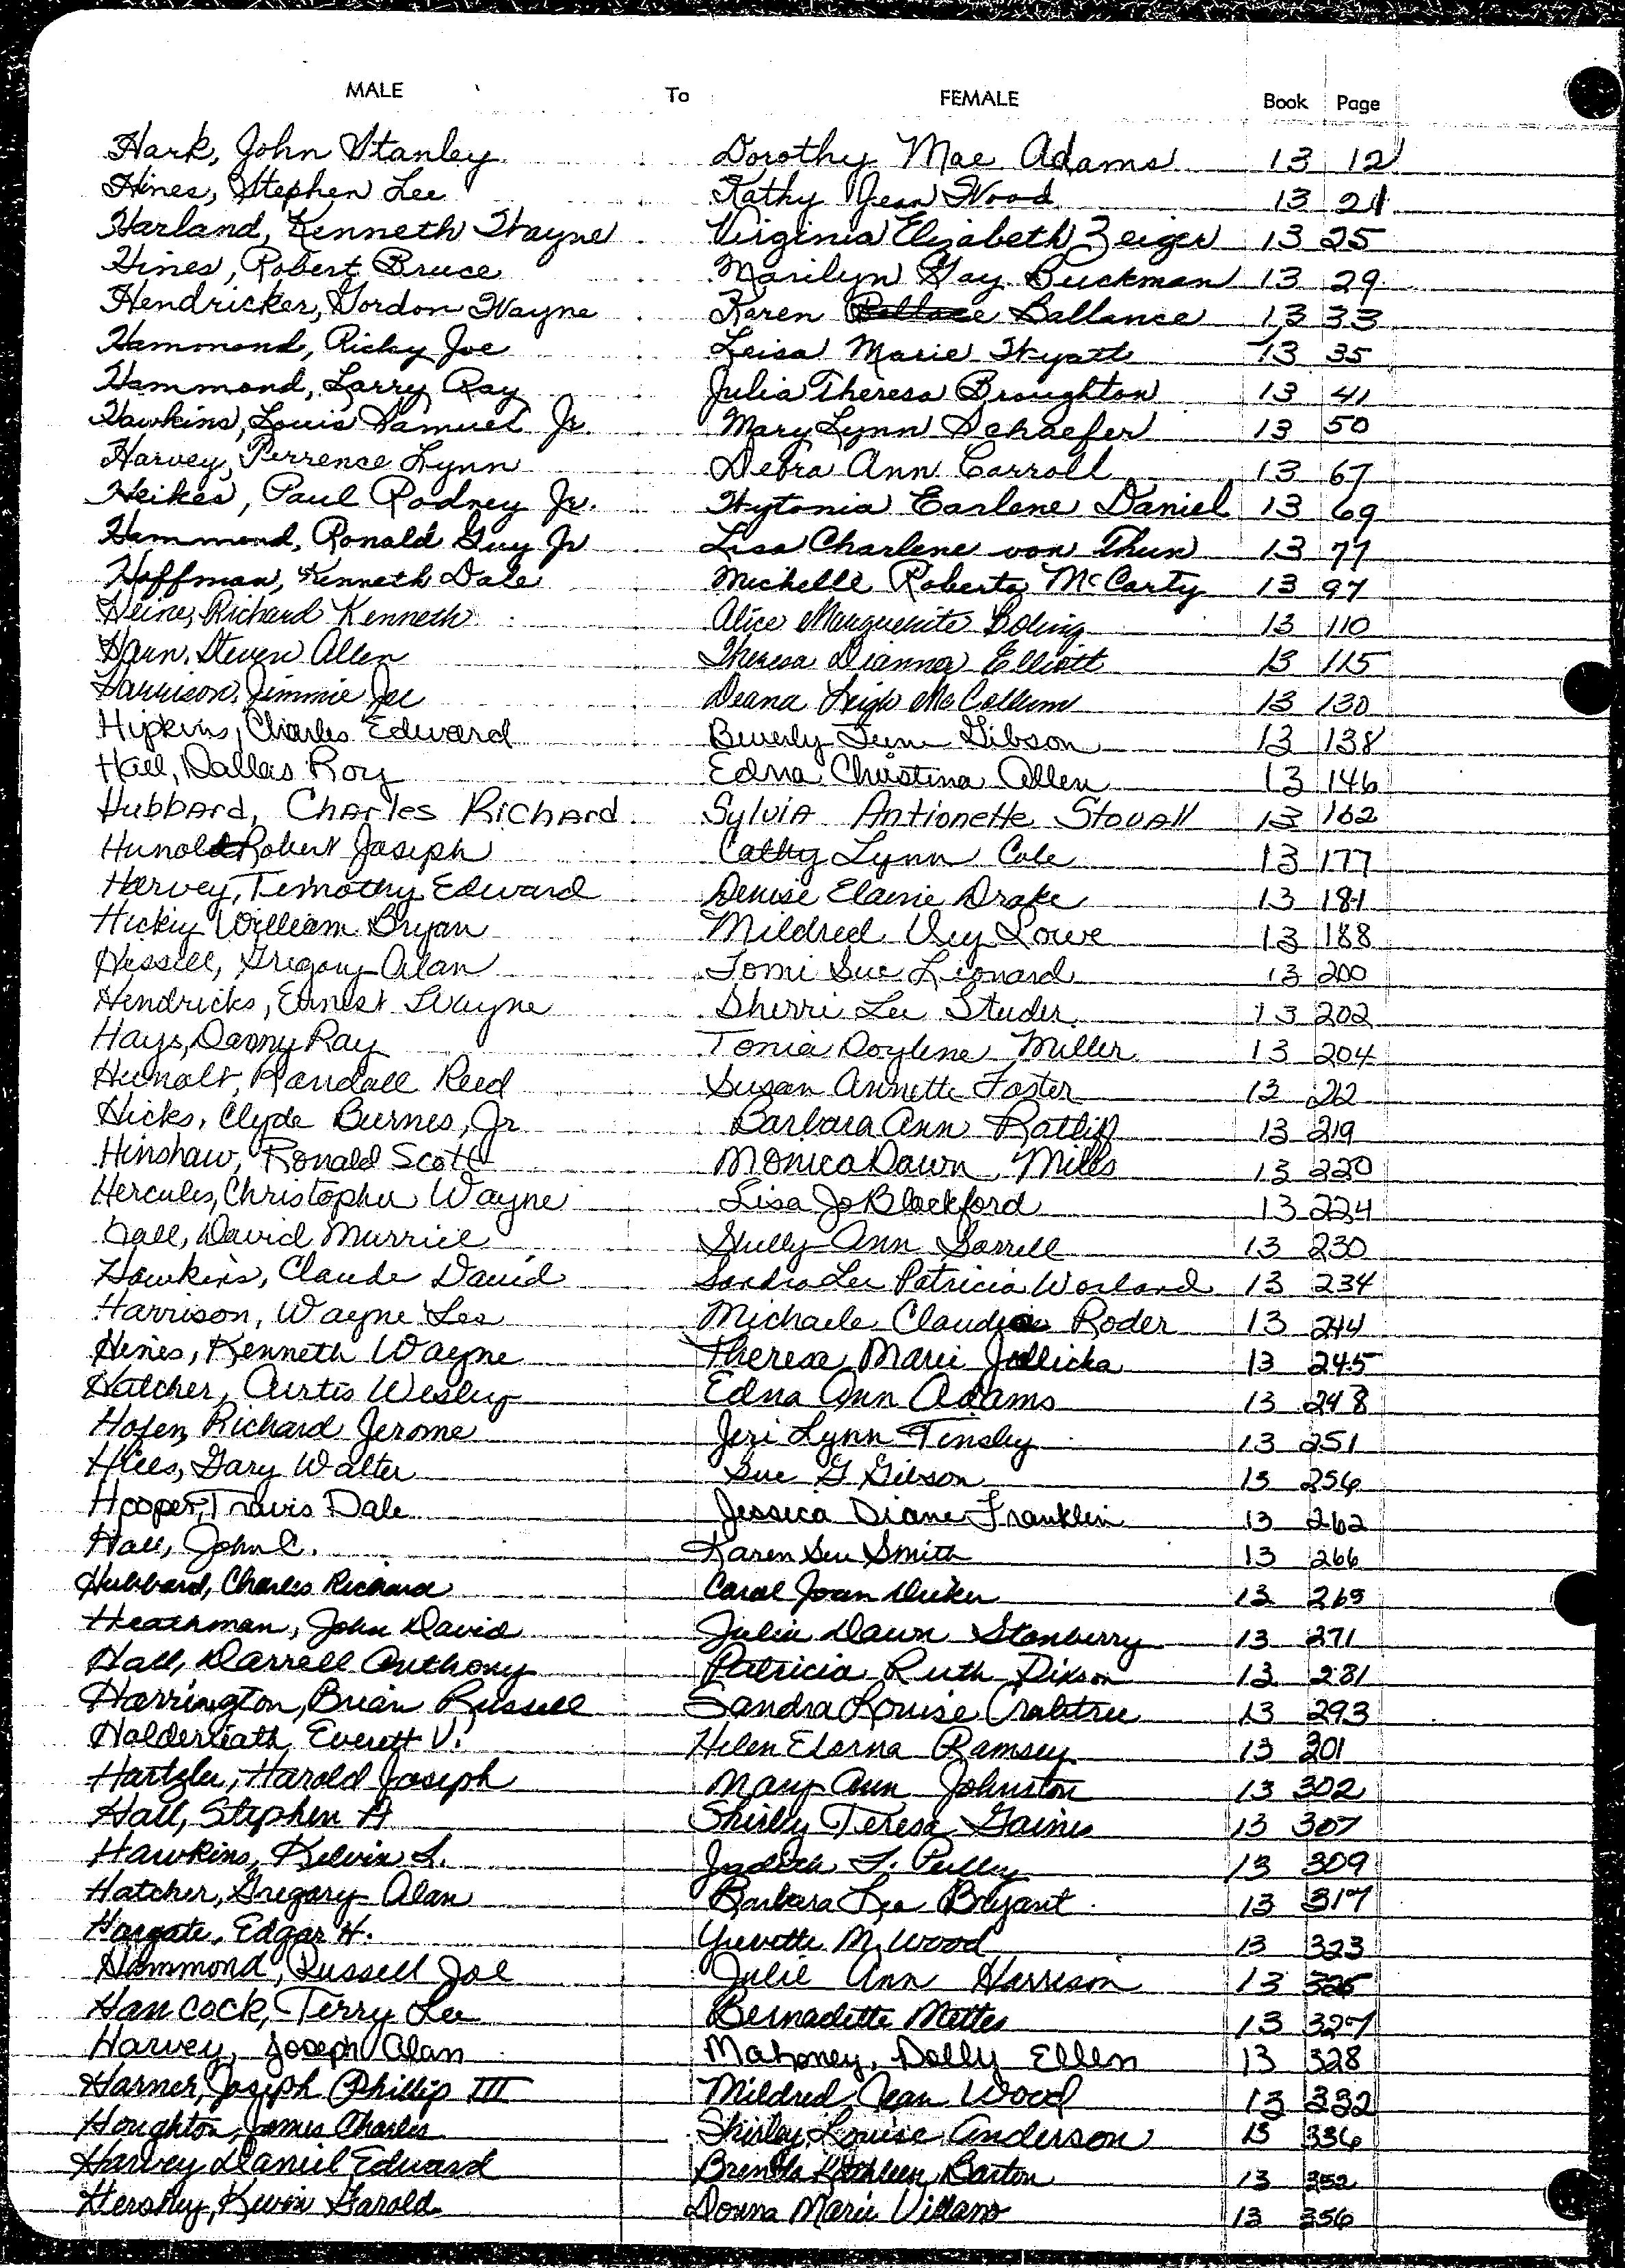 MALE To FEMALE Book Page
Hark, John Stanley Dorothy Mae Adams 13 12
Hines, Stephen Lee Kathy Jean Wood 13 21
Harland, Kenneth Wayne Virginia Elizabeth Zeiger 13 25
Hines, Robert Bruce Marilyn Gay Buckman 13 29
Hendricker, Gordon Wayne Karen Ballance 13 33
Hammond, Ricky Joe Leisa Marie Wyatt 13 35
Hammond, Larry Ray Julia Theresa Broughton 13 41
Hawkins, Louis Samuel Jr. Mary Lynn Schaefer 13 50
Harvey, Perrence Lynn Debra Ann Carroll 13 67
Heikes, Paul Rodney Jr. Wytonia Earlene Daniel 13 69
Hammond, Ronald Guy Jr Lisa Charlene von Thun 13 77
Hoffman, Kenneth Dale Michelle Roberta McCarty 13 97
Heine, Richard Kenneth Alice Marguerite Boling 13 110
Haun, Steven Allen Theresa Deanna Elliott 13 115
Harrison, Jimmie Joe Deana Leigh McCollum 13 130
Hipkins, Charles Edward Beverly June Gibson 13 138
Hall, Dallas Roy Edna Christina Allen 13 146
Hubbard, Charles Richard Sylvia Antionette Stovall 13 162
Hunold Robert Joseph Cathy Lynn Cole 13 177
Harvey, Timothy Edward Denise Elaine Drake 13 181
Hickey William Bryan Mildred Lowe 13 188
Hessell, Gregory Alan Tomi Sue Leonard 13 200
Hendricks, Ernest Wayne Sherri Lee Studer 13 202
Hays, Danny Ray Tonia Doylene Miller 13 204
Hunolt, Randall Reed Susan Annette Foster 13 212
Hicks, Clyde Burnes, Jr Barbara Ann Ratliff 13 219
Hinshaw, Ronald Scott Monica Dawn Mills 13 220
Hercules, Christopher Wayne Lisa Jo Blackford 13 224
Hall, David Murriel Shelly Ann Sarrell 13 230
Hawkins, Claude David Sandra Lee Patricia Worland 13 234
Harrison, Wayne Lee Michaele Claudia Roder 13 244
Hines, Kenneth Wayne Theresa Marie Jellicka 13 245
Hatcher, Curtis Wesley Edna Ann Adams 13 248
Hofen, Richard Jerome Jeri Lynn Tinsley 13 251
Hiles, Gary Walter Sue G Gibson 13 256
Hooper, Travis Dale Jessica Diane Franklin 13 262
Hall, John C. Karen Sue Smith 13 266
Hubbard, Charles Richard Carol Joan 13 269
Heathman, John David Julia Dawn Stanberry 13 271
Hall, Darrell Anthony Patricia Ruth Dixson 13 281
Harrington, Brian Russell Sandra Louise Crabtree 13 293
Halderliath Everett V. Helen Elorna Ramsey 13 301
Hartzler, Harold Joseph Mary Ann Johnston 13 302
Hall, Stephen A Shirley Teresa Gaines 13 307
Hawkins, Kelvin L. Judith F. Pulley 13 309
Hatcher, Gregory Alan Barbara Lea Bryant 13 317
Hargate, Edgar H. Yuvette M. Wood 13 323
Hammond, Russell Joe Julie Ann Harrison 13 325
Hancock, Terry Lee Bernadette Mettes 13 327
Harvey, Joseph Alan Mahoney, Dolly Ellen 13 328
Harner, Joseph Phillip III Mildred Jean Wood 13 332
Houghton, James Charles Shirley Louise Anderson 13 336
Harvey Daniel Edward Brenda Kathleen Barton 13 352
Hershey, Kevin Harold Donna Marie Villano 13 356